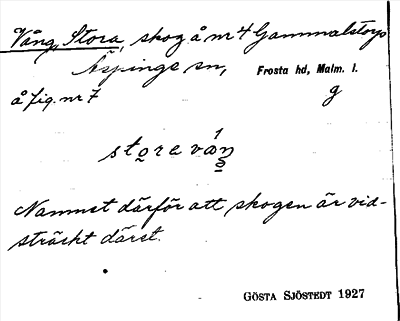 Vång, Stora, skog å nr 4 Gammalstorp
Äspinge sn, Frosta hd, Malm. l.
å fig. nr 7 g
store vån
Namnet därför att skogen är vid-
sträckt därst.
GÖSTA SJÖSTEDT 1927